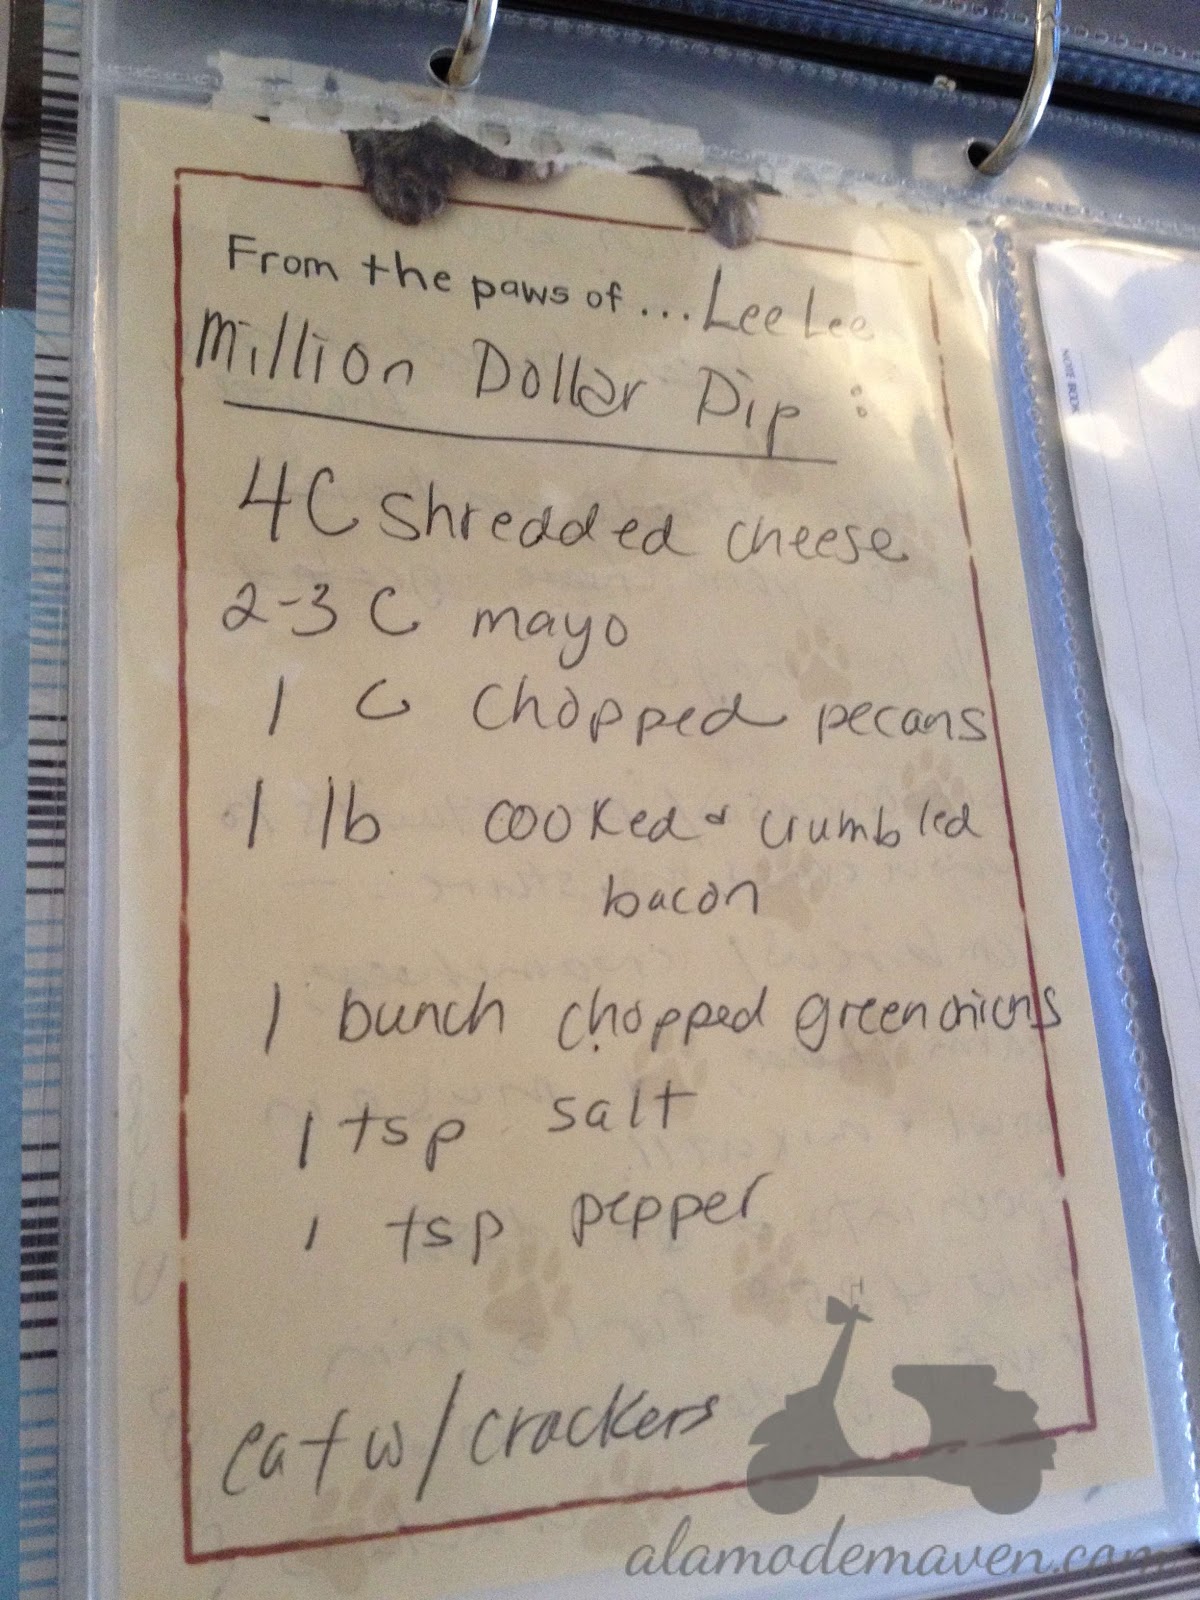 From the paws of ... Lee Lee
Million Dollar Dip :
4C shredded cheese
2-3 C mayo
1 C chopped pecans
1 lb cooked & crumbled
bacon
1 bunch chopped green onions
1 tsp salt
1 tsp pepper
eat w/ crackers
NOTE BOOK
alamodemaven.com